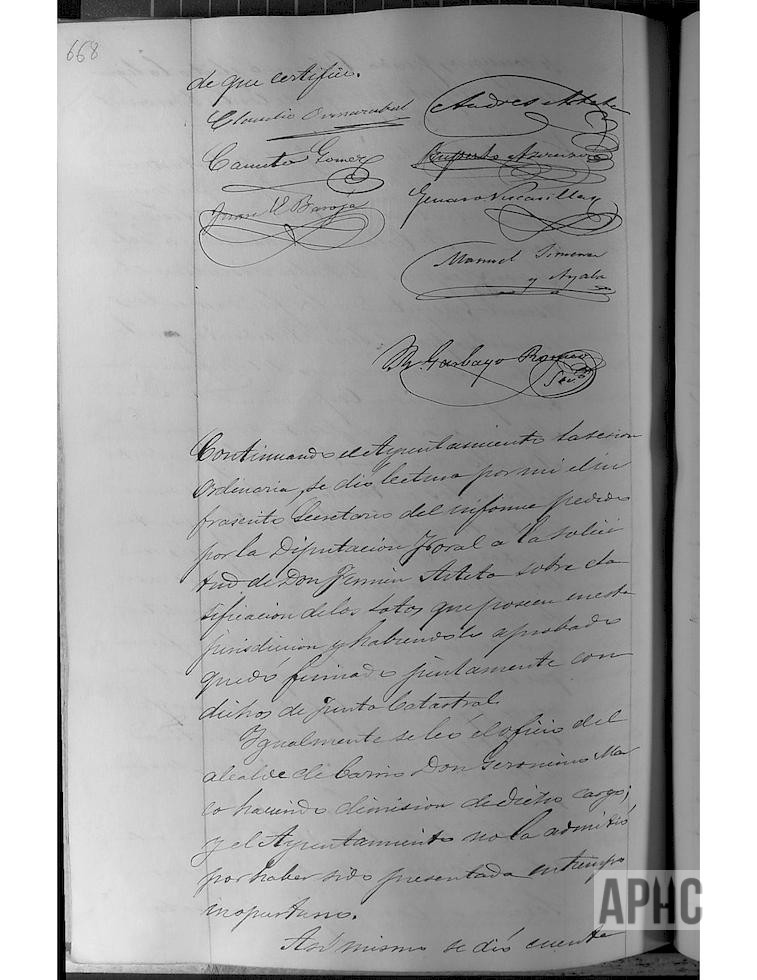 668
de que certifico.
Claudio
Andres Arteta
Canuto Gomez
Ruperto
Juan V. Baroja
Genaro
Manuel Jimenez
y Ayala
Garbayo Romeo
Sec.º
Continuando el Ayuntamiento la sesion
Ordinaria, se dió lectura por mi el in
frascrito Secretario del informe pedido
por la Diputacion Foral a la solici
tud de Don Fermin Arteta sobre cla
sificacion de los sotos que poseen en esta
jurisdicion y habiendole aprobado
quedó firmado juntamente con
dichos de Junta Catastral.
Igualmente se leó el oficio del
alcalde de Barrio Don Geronimo Ma
co haciendo dimision de dicho cargo;
y el Ayuntamiento no la admitió
por haber sido presentada en tiempo
inoportuno.
Asi mismo se dió cuenta
APHC